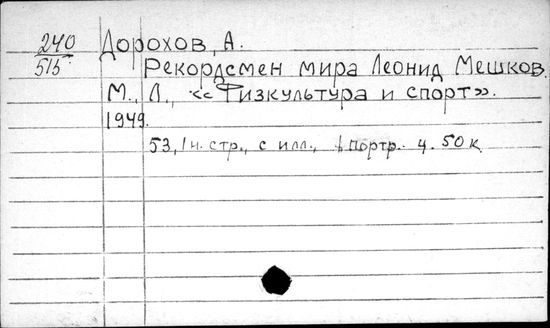 240 Дорохов, А.
515 Рекордсмен мира Леонид Мешков.
М., Л., «Физкультура и спорт».
1949.
53, 1 н. стр., с илл., 1 портр. 4. 50 к.